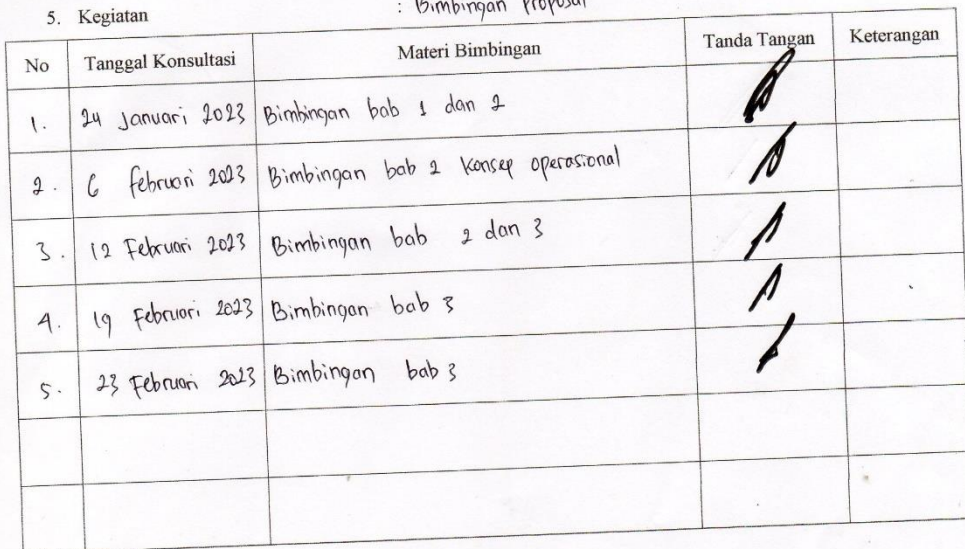 5. Kegiatan : Bimbingan Proposal
No Tanggal Konsultasi Materi Bimbingan Tanda Tangan Keterangan
1. 24 Januari 2023 Bimbingan bab 1 dan 2
2. 6 februari 2023 Bimbingan bab 2 Konsep operasional
3. 12 Februari 2023 Bimbingan bab 2 dan 3
4. 19 Februari 2023 Bimbingan bab 3
5. 23 Februari 2023 Bimbingan bab 3